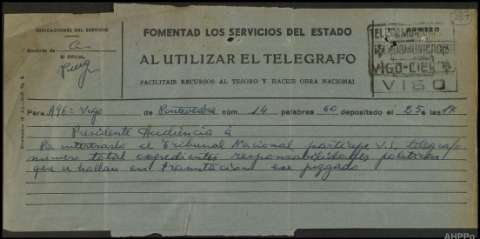 INDICACIONES DEL SERVICIO
FOMENTAD LOS SERVICIOS DEL ESTADO
AL UTILIZAR EL TELEGRAFO
FACILITAIS RECURSOS AL TESORO Y HACEIS OBRA NACIONAL
EL OFICIAL,
VIGO-CIE
VIGO
Para A96= Vigo de Pontevedra núm. 14 palabras 60 depositado el 25 a las 18
Presidente Audiencia á
interesarlo el Tribunal Nacional participe V.S. telégrafo
número total expedientes responsabilidades politicas
que se hallan en tramitacion ese juzgado
AHPPo